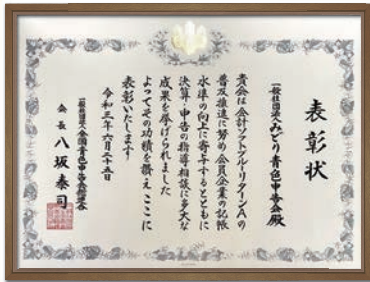 表彰状
一般社団法人みどり青色申告会殿
貴会は会計ソフトブルーリターンAの
普及推進に努め会員企業の記帳
水準の向上に寄与するとともに
決算・申告の指導相談に多大な
成果を挙げられました
よってその功績を讃えここに
表彰いたします
令和三年六月二十五日
一般社団法人全国青色申告会総連合
会長 八坂泰司